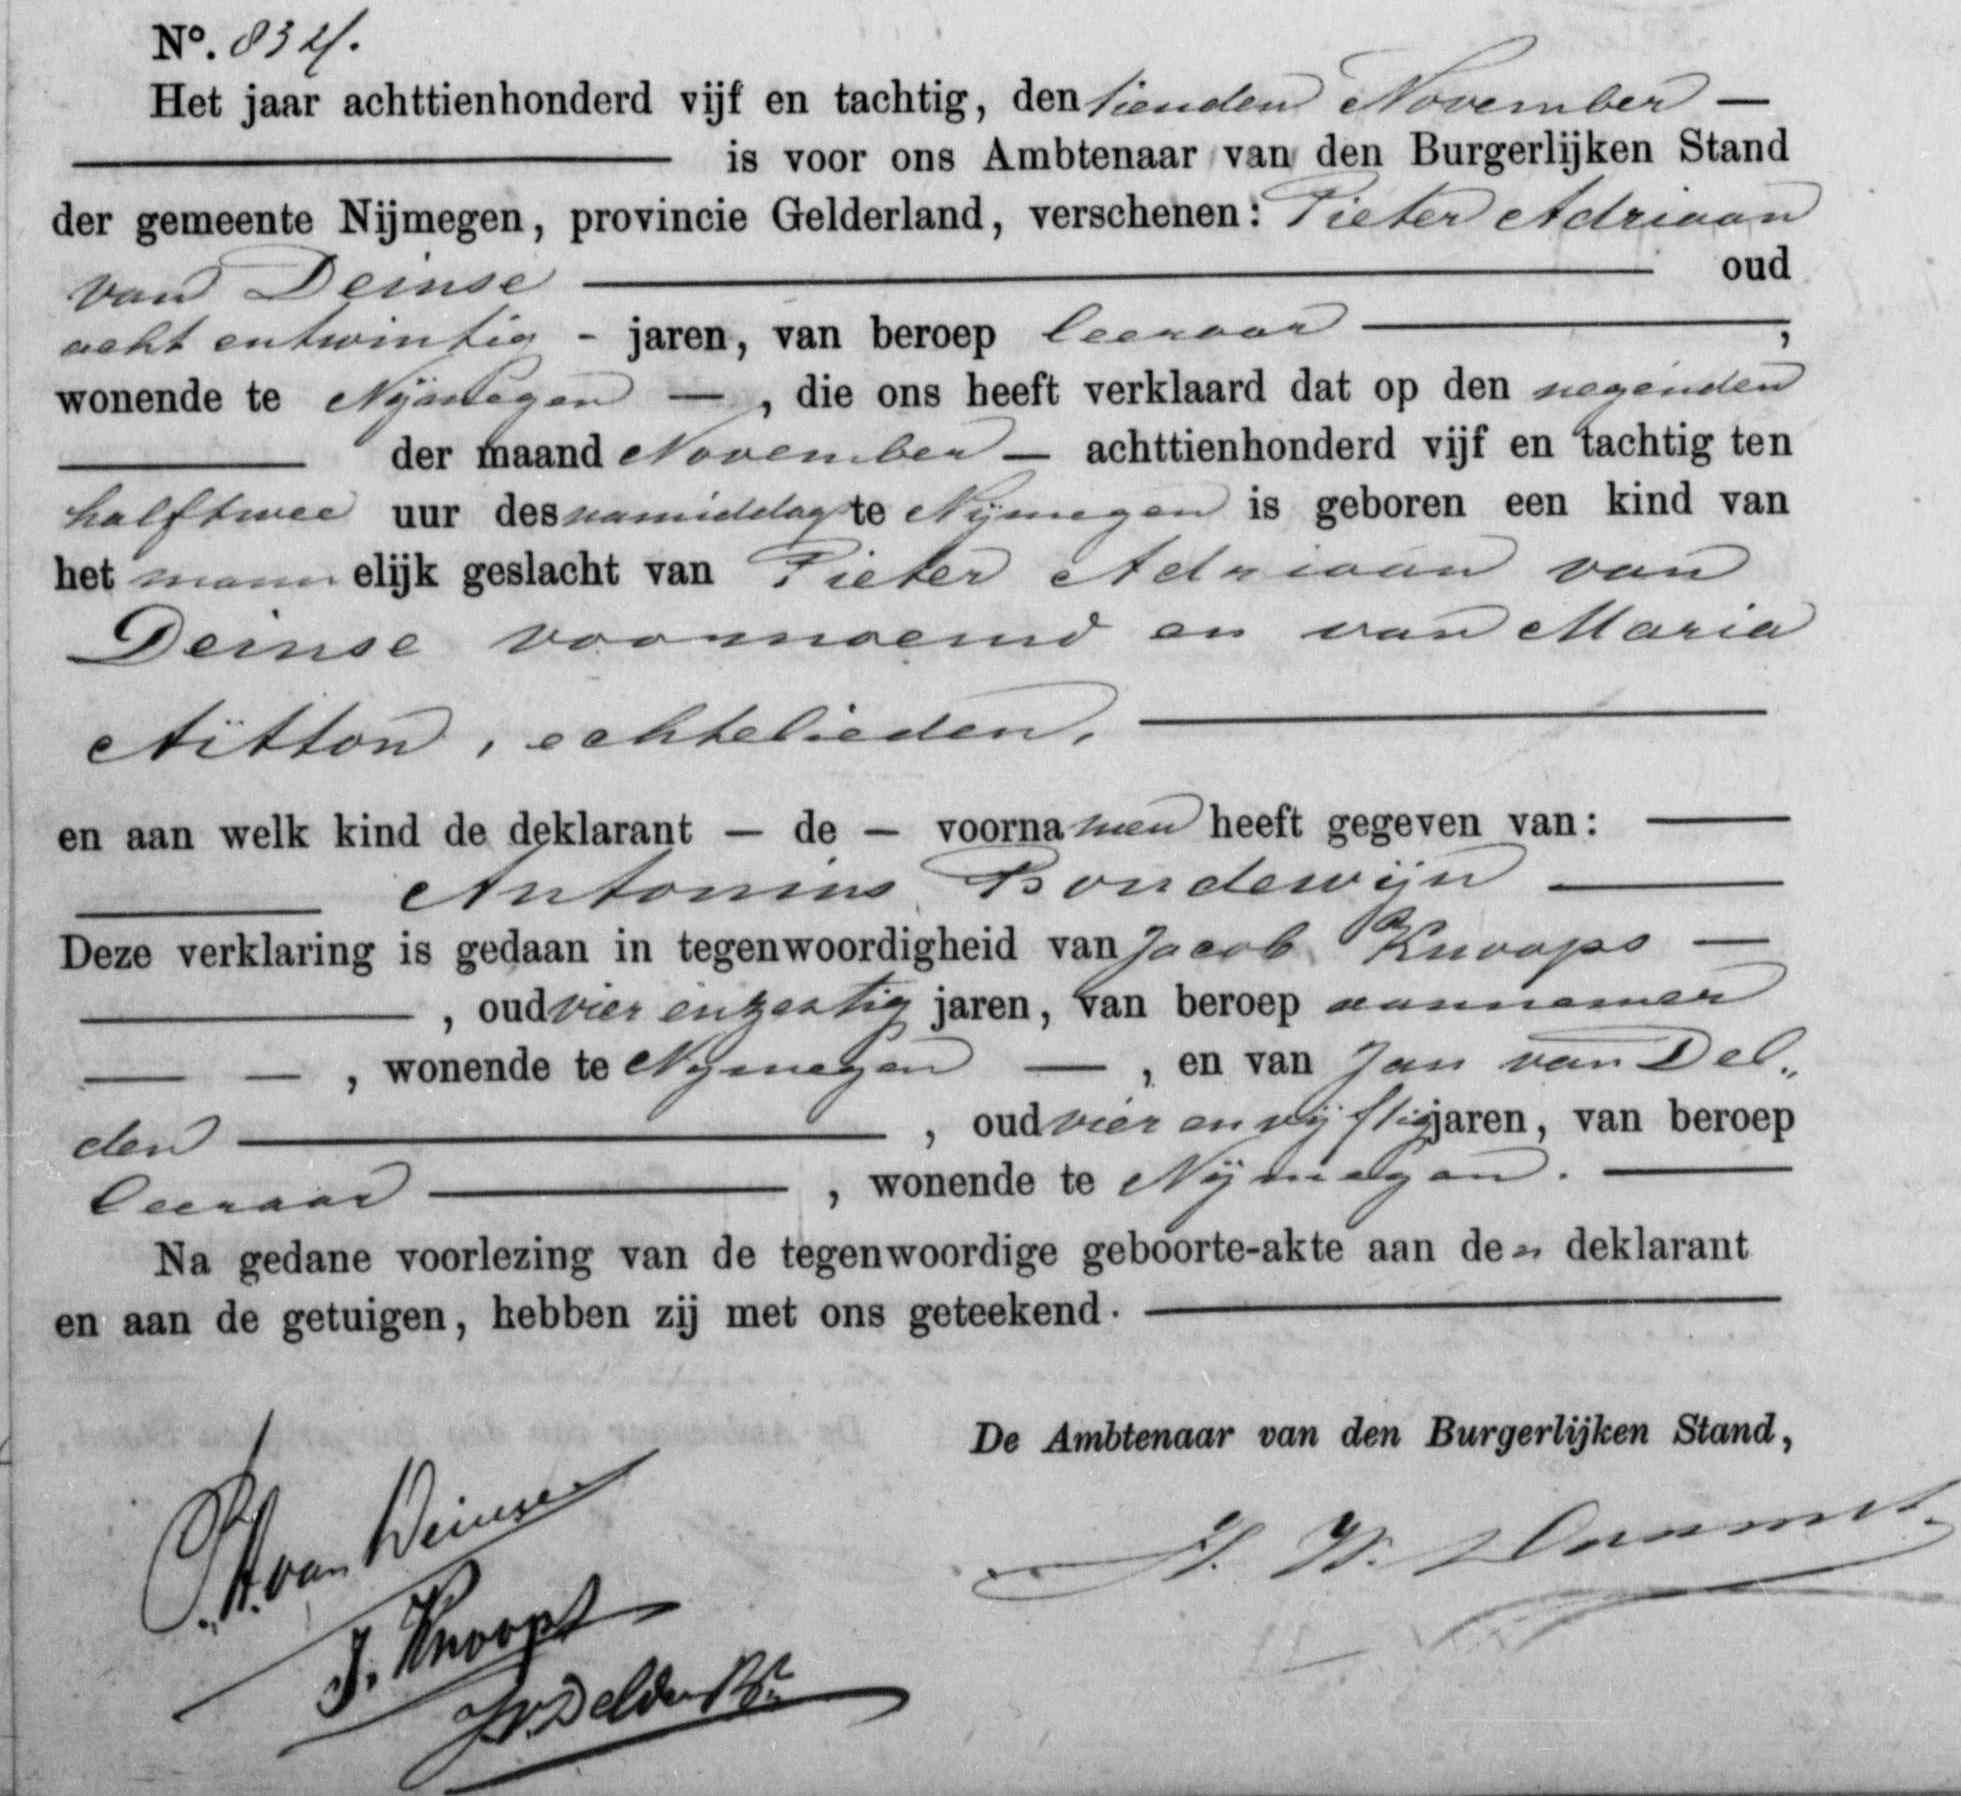 Nº. 834.
Het jaar achttienhonderd vijf en tachtig, den tienden November —
is voor ons Ambtenaar van den Burgerlijken Stand
der gemeente Nijmegen, provincie Gelderland, verschenen: Pieter Adriaan
van Deinse — oud
acht en twintig - jaren, van beroep leeraar —,
wonende te Nijmegen —, die ons heeft verklaard dat op den negenden
— der maand November — achttienhonderd vijf en tachtig ten
half twee uur des namiddags te Nijmegen is geboren een kind van
het mannelijk geslacht van Pieter Adriaan van
Deinse voornoemd en van Maria
Aïtton, echtelieden, —
en aan welk kind de deklarant — de — voornamen heeft gegeven van: —
— Antonius Boudewijn —
Deze verklaring is gedaan in tegenwoordigheid van Jacob Knoops —
—, oud vier en zestig jaren, van beroep aannemer
— —, wonende te Nijmegen —, en van Jan van Del„
den —, oud vier en vijftig jaren, van beroep
leeraar —, wonende te Nijmegen. —
Na gedane voorlezing van de tegenwoordige geboorte-akte aan den deklarant
en aan de getuigen, hebben zij met ons geteekend. —
De Ambtenaar van den Burgerlijken Stand,
P.A. van Deinse
J. Knoops
J v. Delden